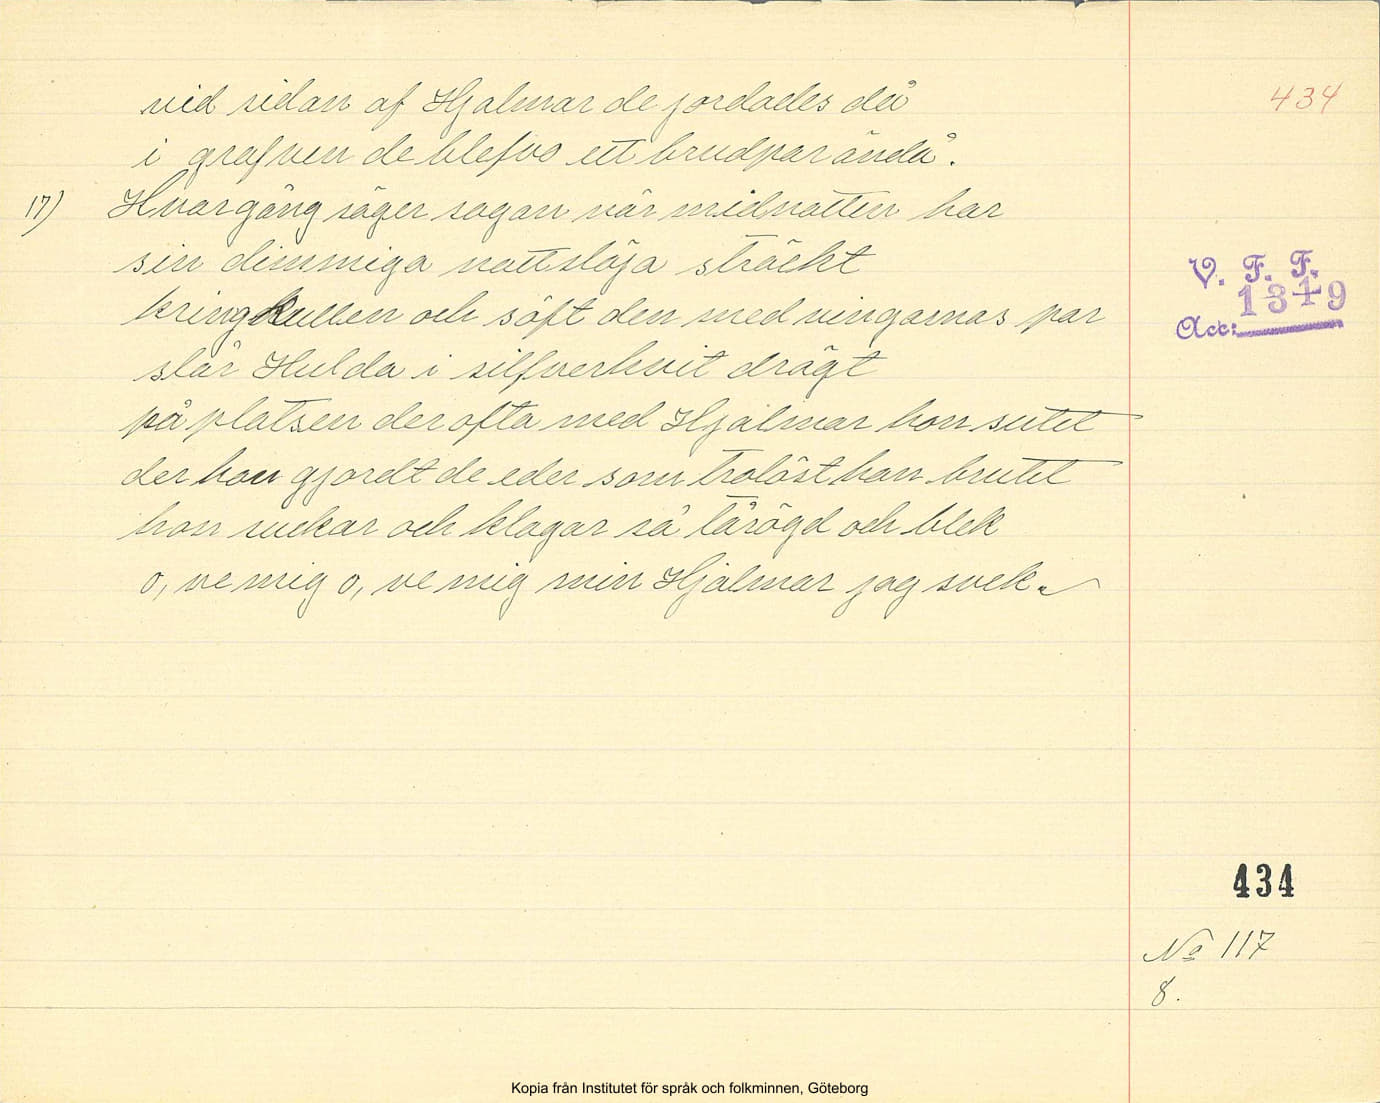 vid sidan af Hjalmar de jordades då
434
i grafven de blefvo ett brudpar ändå.
17) Hvargång säger sagan när midnatten har
sin dimmiga nattslöja sträckt
V. F. F.
1319
Acc:
kring kullen och söft den med vingarnas par
slår Hulda i silfverhvit drägt
på platsen der ofta med Hjalmar hon sutit
der hon gjordt de eder som trolöst hon brutit
hon suckar och klagar så tårögd och blek
o, ve mig o, ve mig min Hjalmar jag svek.
434
No 117
8.
Kopia från Institutet för språk och folkminnen, Göteborg